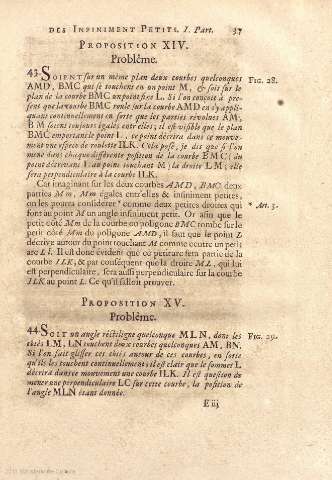 DES INFINIMENT PETITS. I. Part. 37
PROPOSITION XIV.
Problême.
43. SOIENT sur un même plan deux courbes quelconques
AMD, BMC qui se touchent en un point M, & soit sur le
plan de la courbe BMC un point fixe L. Si l'on conçoit à pre-
sent que la courbe BMC roule sur la courbe AMD en s'y appli-
quant continuellement en sorte que les parties révolues AM,
BM soient toujours égales entr'elles; il est visible que le plan
BMC emportant le point L, ce point décrira dans ce mouve-
ment une espece de roulette ILK. Cela posé, je dis que si l'on
mene dans chaque différente position de la courbe BMC, du
point décrivant L au point touchant M, la droite LM; elle
sera perpendiculaire à la courbe ILK.
FIG. 28.
Car imaginant sur les deux courbes AMD, BMC deux
parties Mm, Mm égales entr'elles & infiniment petites,
on les pourra considerer * comme deux petites droites qui
font au point M un angle infiniment petit. Or afin que le
petit côté Mm de la courbe ou poligone BMC tombe sur le
petit côté Mm du poligone AMD, il faut que le point L
décrive autour du point touchant M comme centre un petit
arc Ll. Il est donc évident que ce petit arc fera partie de
la courbe ILK, & par conséquent que la droite ML, qui lui
est perpendiculaire, sera aussi perpendiculaire sur la courbe
ILK au point L. Ce qu'il falloit prouver.
* Art. 3.
PROPOSITION XV.
Problême.
44. SOIT un angle rectiligne quelconque MLN, dont les
côtés LM, LN touchent deux courbes quelconques AM, BN.
Si l'on fait glisser ces côtés autour de ces courbes, en sorte
qu'ils les touchent continuellement; il est clair que le sommet L
décrira dans ce mouvement une courbe ILK. Il est question de
mener une perpendiculaire LC sur cette courbe, la position de
l'angle MLN étant donnée.
FIG. 29.
E iij